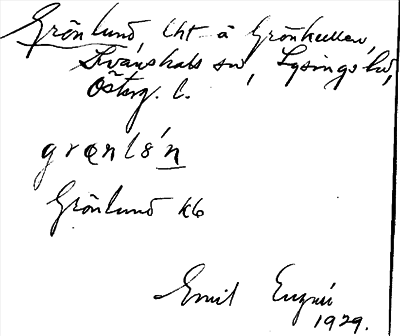 Grönlund, lht å Grönkullen,
Svanshals sn, Lysings hd,
Österg. l.
grœnlón
Grönlund kb
Emil
1929.